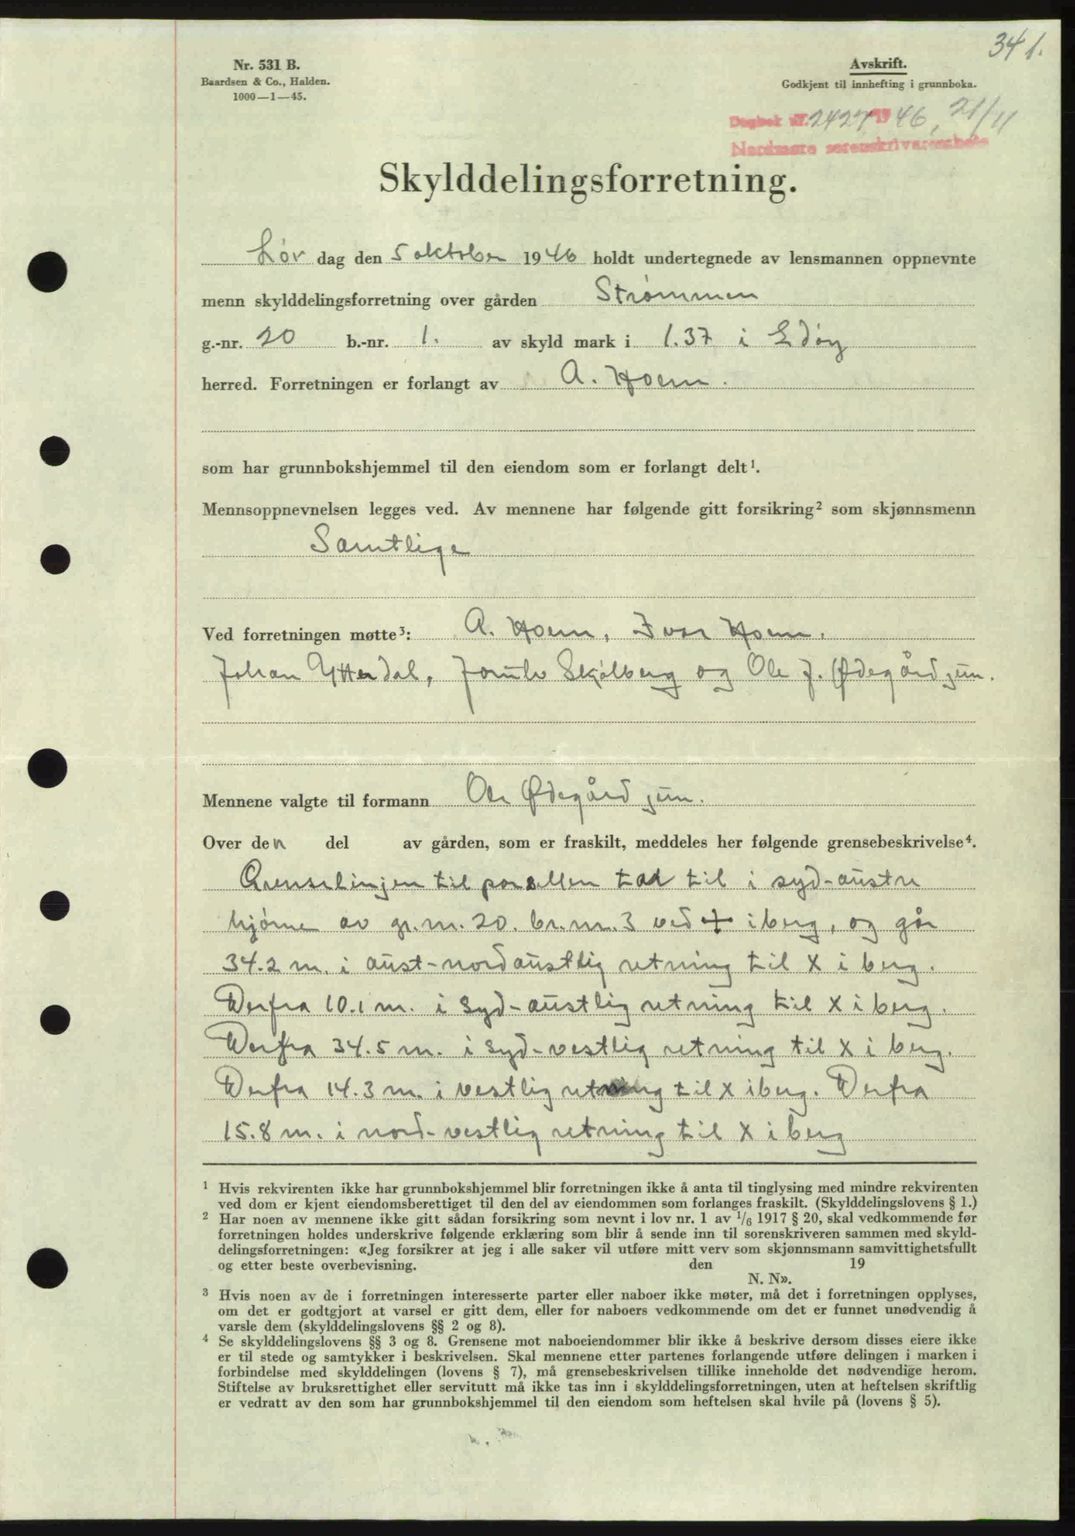 341.
Nr. 531 B.
Baardsen & Co., Halden.
1000—1—45.
Avskrift.
Godkjent til innhefting i grunnboka.
Dagbok nr. 2427 1946, 21/11
Nordmøre sorenskriverembete
Skylddelingsforretning.
Lør dag den 5 oktober 1946 holdt undertegnede av lensmannen oppnevnte
menn skylddelingsforretning over gården Strømmen
g.-nr. 20 b.-nr. 1. av skyld mark i 1.37 i Edøy
herred. Forretningen er forlangt av A. Hoem.
som har grunnbokshjemmel til den eiendom som er forlangt delt¹.
Mennsoppnevnelsen legges ved. Av mennene har følgende gitt forsikring² som skjønnsmenn
Samtlige
Ved forretningen møtte³: A. Hoem, Ivar Hoem.
Johan Ytterdal, Skålberg og Ole J. Ødegård jun.
Mennene valgte til formann Ole Ødegård jun.
Over den del av gården, som er fraskilt, meddeles her følgende grensebeskrivelse⁴.
Grenselinjen til parsellen tad til i syd-austre
hjørne av gr.nr. 20. br.nr. 3 ved + i berg, og går
34.2 m. i aust-nordaustlig retning til X i berg.
Derfra 10.1 m. i syd-austlig retning til X i berg.
Derfra 34.5 m. i syd-vestlig retning til X i berg.
Derfra 14.3 m. i vestlig retning til X i berg. Derfra
15.8 m. i nord-vestlig retning til X i berg
¹ Hvis rekvirenten ikke har grunnbokshjemmel blir forretningen ikke å anta til tinglysing med mindre rekvirenten
ved dom er kjent eiendomsberettiget til den del av eiendommen som forlanges fraskilt. (Skylddelingslovens § 1.)
² Har noen av mennene ikke gitt sådan forsikring som nevnt i lov nr. 1 av 1/6 1917 § 20, skal vedkommende før
forretningen holdes underskrive følgende erklæring som blir å sende inn til sorenskriveren sammen med skyld-
delingsforretningen: «Jeg forsikrer at jeg i alle saker vil utføre mitt verv som skjønnsmann samvittighetsfullt
og etter beste overbevisning. den 19
N. N».
³ Hvis noen av de i forretningen interesserte parter eller naboer ikke møter, må det i forretningen opplyses,
om det er godtgjort at varsel er gitt dem, eller for naboers vedkommende om det er funnet unødvendig å
varsle dem (skylddelingslovens §§ 2 og 8).
⁴ Se skylddelingslovens §§ 3 og 8. Grensene mot naboeiendommer blir ikke å beskrive dersom disses eiere ikke
er til stede og samtykker i beskrivelsen. Skal mennene etter partenes forlangende utføre delingen i marken i
forbindelse med skylddelingen (lovens § 7), må grensebeskrivelsen tillike inneholde det nødvendige herom.
Stiftelse av bruksrettighet eller servitutt må ikke tas inn i skylddelingsforretningen, uten at heftelsen skriftlig
er vedratt av den som har grunnbokshjemmel til den eiendom som heftelsen skal hvile på (lovens § 5).